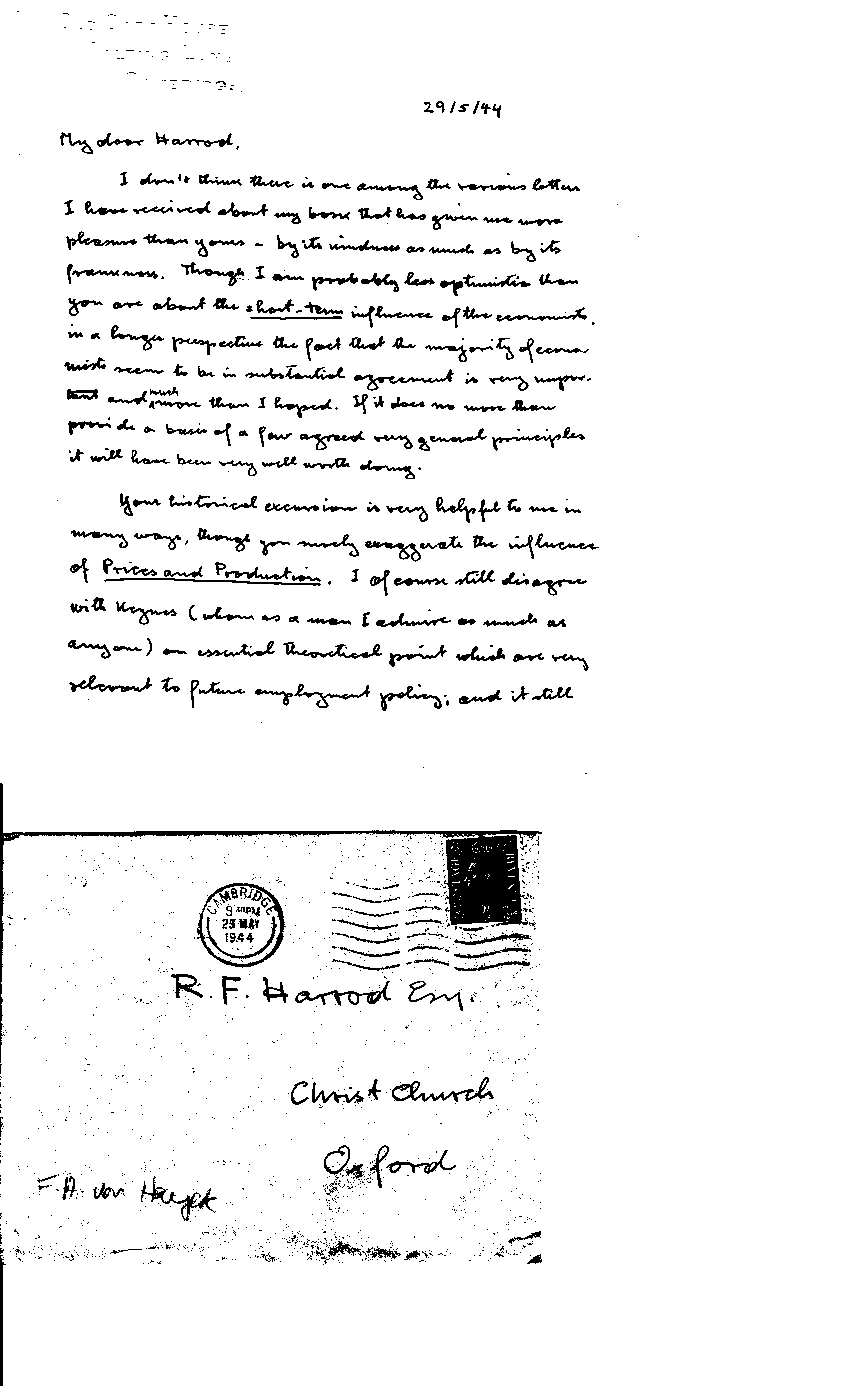 29/5/44
My dear Harrod,
I don't think there is one among the various letters
I have received about my book that has given me more
pleasure than yours – by its kindness as much as by its
frankness. Though I am probably less optimistic than
you are about the short-term influence of the economists,
in a longer perspective the fact that the majority of econo
mists seem to be in substantial agreement is very impor-
tant and much more than I hoped. If it does no more than
provide a basis of a few agreed very general principles
it will have been very well worth doing.
Your historical excursion is very helpful to me in
many ways, though you surely exaggerate the influence
of Prices and Production. I of course still disagree
with Keynes (whom as a man I admire as much as
anyone) on essential theoretical point which are very
relevant to future employment policy; and it still
CAMBRIDGE
MAY
1944
R. F. Harrod Esq.
Christ Church
Oxford
F.A. von Hayek